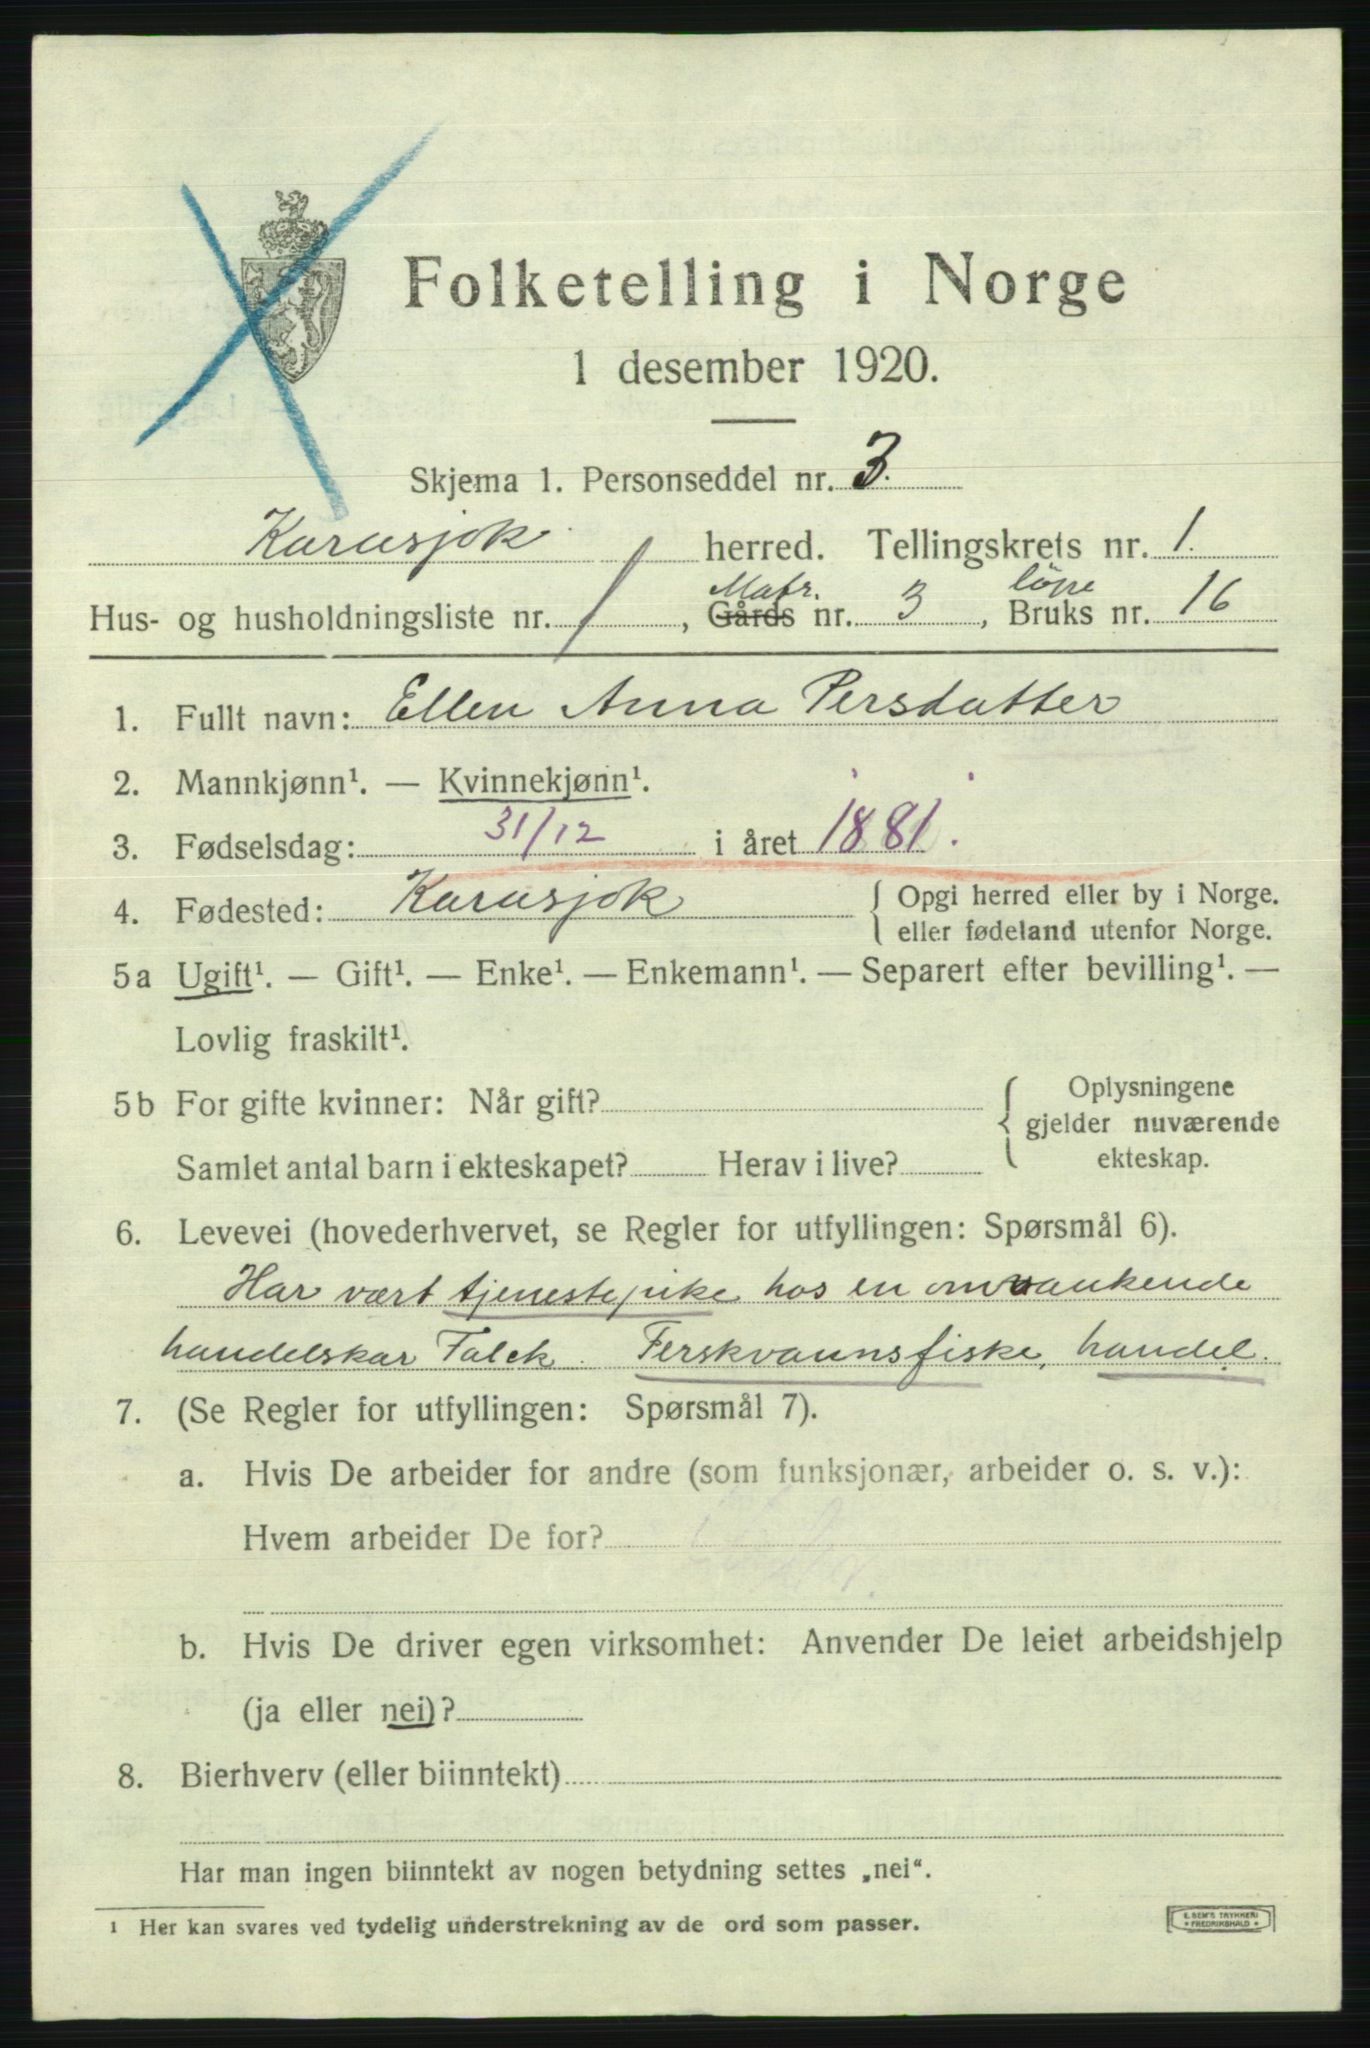 Folketelling i Norge
1 desember 1920.
Skjema 1. Personseddel nr. 3.
Karasjok herred. Tellingskrets nr. 1.
Matr. löpe
Hus- og husholdningsliste nr. 1, Gårds nr. 3, Bruks nr. 16
1. Fullt navn: Ellen Anna Persdatter
2. Mannkjønn¹. — Kvinnekjønn¹.
3. Fødselsdag: 31/12 i året 1881.
4. Fødested: Karasjok { Opgi herred eller by i Norge.
eller fødeland utenfor Norge.
5a Ugift¹. — Gift¹. — Enke¹. — Enkemann¹. — Separert efter bevilling¹. —
Lovlig fraskilt¹.
5b For gifte kvinner: Når gift? { Oplysningene
gjelder nuværende
Samlet antal barn i ekteskapet? Herav i live? ekteskap.
6. Levevei (hovederhvervet, se Regler for utfyllingen: Spørsmål 6).
Har vært tjenestepike hos en omvankende
handelskar Falck. Ferskvannsfiske, handel.
7. (Se Regler for utfyllingen: Spørsmål 7).
a. Hvis De arbeider for andre (som funksjonær, arbeider o. s. v.):
Hvem arbeider De for?
b. Hvis De driver egen virksomhet: Anvender De leiet arbeidshjelp
(ja eller nei)?
8. Bierhverv (eller biinntekt)
Har man ingen biinntekt av nogen betydning settes „nei“.
¹ Her kan svares ved tydelig understrekning av de ord som passer.
E. SEM'S TRYKKERI
* FREDRIKSHALD *